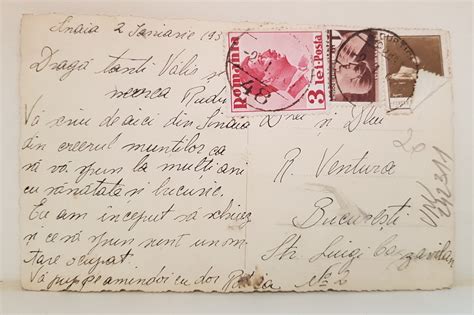 Sinaia 2 Ianuarie 193
Dragă tanti Valia și
nenea Radu
Vă scriu de aici din Sinaia
din creerul munților ca
să vă spun la mulți ani
cu sănătate și bucurie.
Eu am început să schiez
și ce să vă spun sunt un om
tare ocupat.
Vă pup pe amândoi cu dor
ROMANIA
3 lei Posta
Dnei și Dlui
R. Ventura
București
Str. Luigi Cazzavilan
No 2